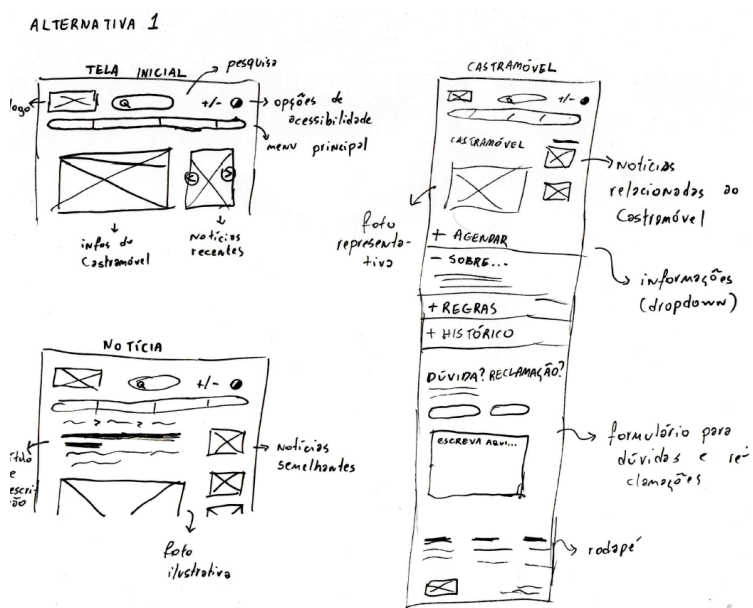 ALTERNATIVA 1
TELA INICIAL
pesquisa
logo
+/-
opções de
acessibilidade
menu principal
infos do
Castramóvel
notícias
recentes
NOTÍCIA
+/-
título
e
descri-
ção
notícias
semelhantes
foto
ilustrativa
CASTRAMÓVEL
+/-
CASTRAMÓVEL
notícias
relacionadas ao
Castramóvel
foto
representa-
tiva
+ AGENDAR
- SOBRE...
+ REGRAS
+ HISTÓRICO
informações
(dropdown)
DÚVIDA? RECLAMAÇÃO?
ESCREVA AQUI...
formulário para
dúvidas e re-
clamações
rodapé